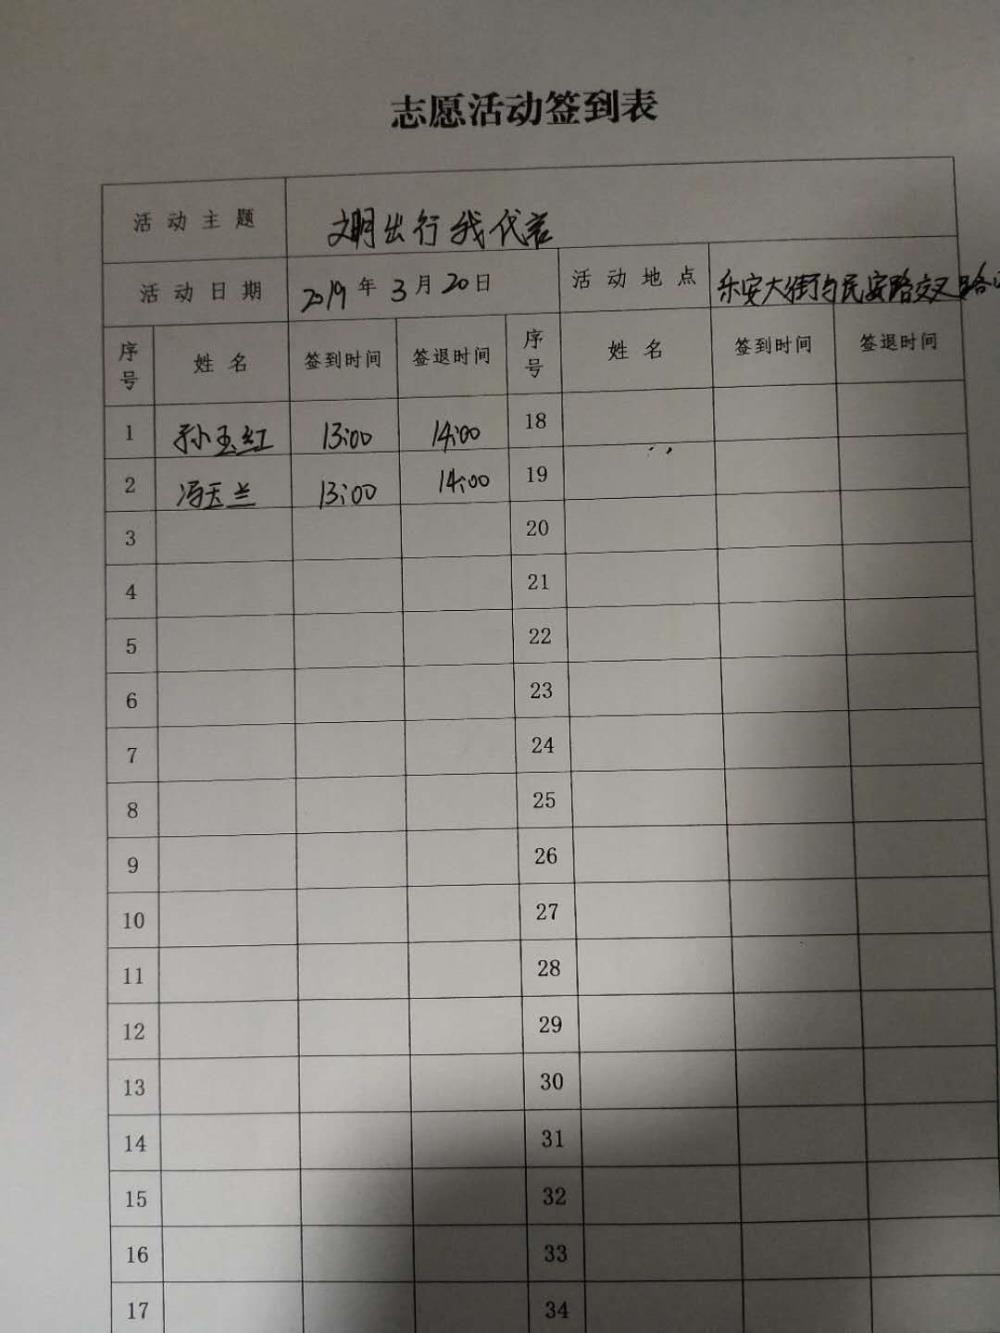 志愿活动签到表
活动主题 文明出行我代言
活动日期 2019年3月20日 活动地点 乐安大街与民安路交叉路口
序号 姓名 签到时间 签退时间 序号 姓名 签到时间 签退时间
1 孙玉红 13:00 14:00 18
2 冯玉兰 13:00 14:00 19
3 20
4 21
5 22
6 23
7 24
8 25
9 26
10 27
11 28
12 29
13 30
14 31
15 32
16 33
17 34